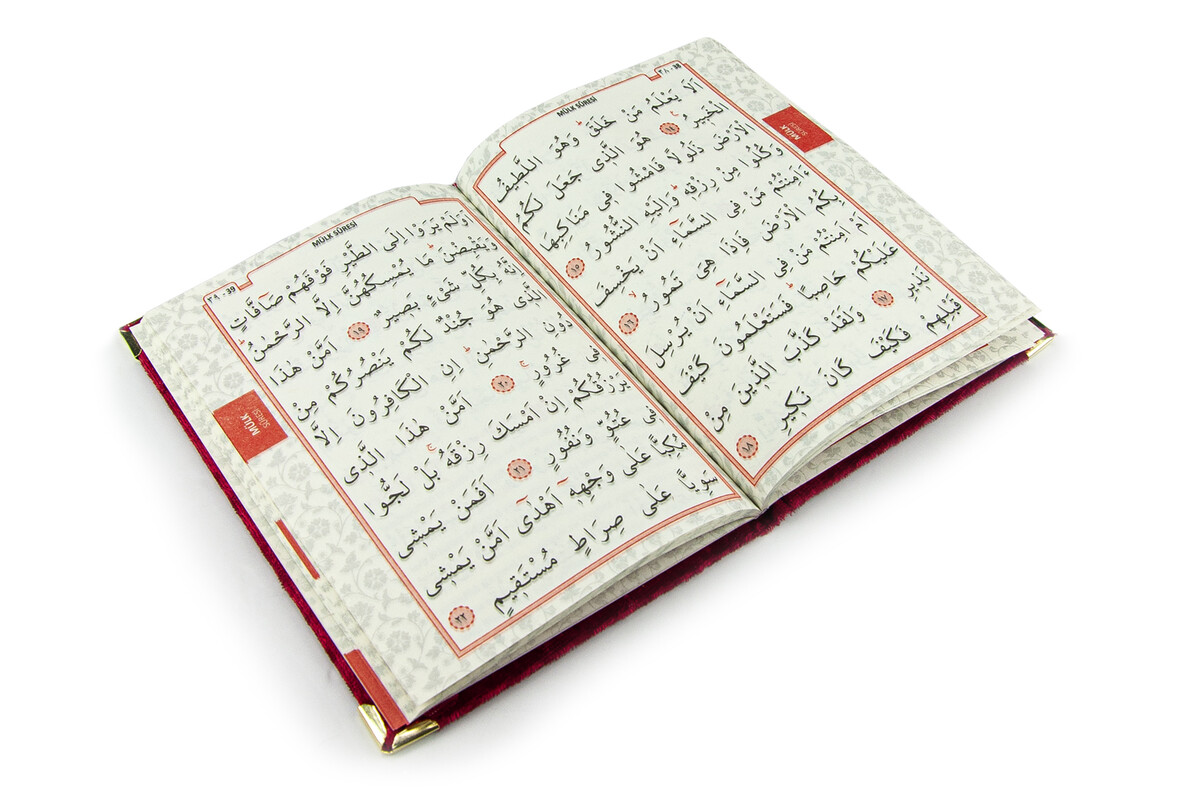 ٣٨ - 38
MÜLK SÛRESİ
MÜLK
SÛRESİ
اَلَا يَعْلَمُ مَنْ خَلَقَۜ وَهُوَ اللَّط۪يفُ
الْخَب۪يرُ۟ ١٤ هُوَ الَّذ۪ي جَعَلَ لَكُمُ
الْاَرْضَ ذَلُولًا فَامْشُوا ف۪ي مَنَاكِبِهَا
وَكُلُوا مِنْ رِزْقِه۪ۜ وَاِلَيْهِ النُّشُورُ ١٥
ءَاَمِنْتُمْ مَنْ فِي السَّمَٓاءِ اَنْ يَخْسِفَ
بِكُمُ الْاَرْضَ فَاِذَا هِيَ تَمُورُۙ ١٦
اَمْ اَمِنْتُمْ مَنْ فِي السَّمَٓاءِ اَنْ يُرْسِلَ
عَلَيْكُمْ حَاصِبًاۜ فَسَتَعْلَمُونَ كَيْفَ
نَذ۪يرِ ١٧ وَلَقَدْ كَذَّبَ الَّذ۪ينَ مِنْ
قَبْلِهِمْ فَكَيْفَ كَانَ نَك۪يرِ ١٨
٣٩ - 39
MÜLK SÛRESİ
MÜLK
SÛRESİ
اَوَلَمْ يَرَوْا اِلَى الطَّيْرِ فَوْقَهُمْ صَٓافَّاتٍ
وَيَقْبِضْنَۜ مَا يُمْسِكُهُنَّ اِلَّا الرَّحْمٰنُۜ
اِنَّهُ بِكُلِّ شَيْءٍ بَص۪يرٌ ١٩ اَمَّنْ هٰذَا
الَّذ۪ي هُوَ جُنْدٌ لَكُمْ يَنْصُرُكُمْ مِنْ
دُونِ الرَّحْمٰنِۜ اِنِ الْكَافِرُونَ اِلَّا
ف۪ي غُرُورٍۚ ٢٠ اَمَّنْ هٰذَا الَّذ۪ي
يَرْزُقُكُمْ اِنْ اَمْسَكَ رِزْقَهُۚ بَلْ لَجُّوا
ف۪ي عُتُوٍّ وَنُفُورٍ ٢١ اَفَمَنْ يَمْش۪ي
مُكِبًّا عَلٰى وَجْهِه۪ٓ اَهْدٰٓى اَمَّنْ يَمْش۪ي
سَوِيًّا عَلٰى صِرَاطٍ مُسْتَق۪يمٍ ٢٢